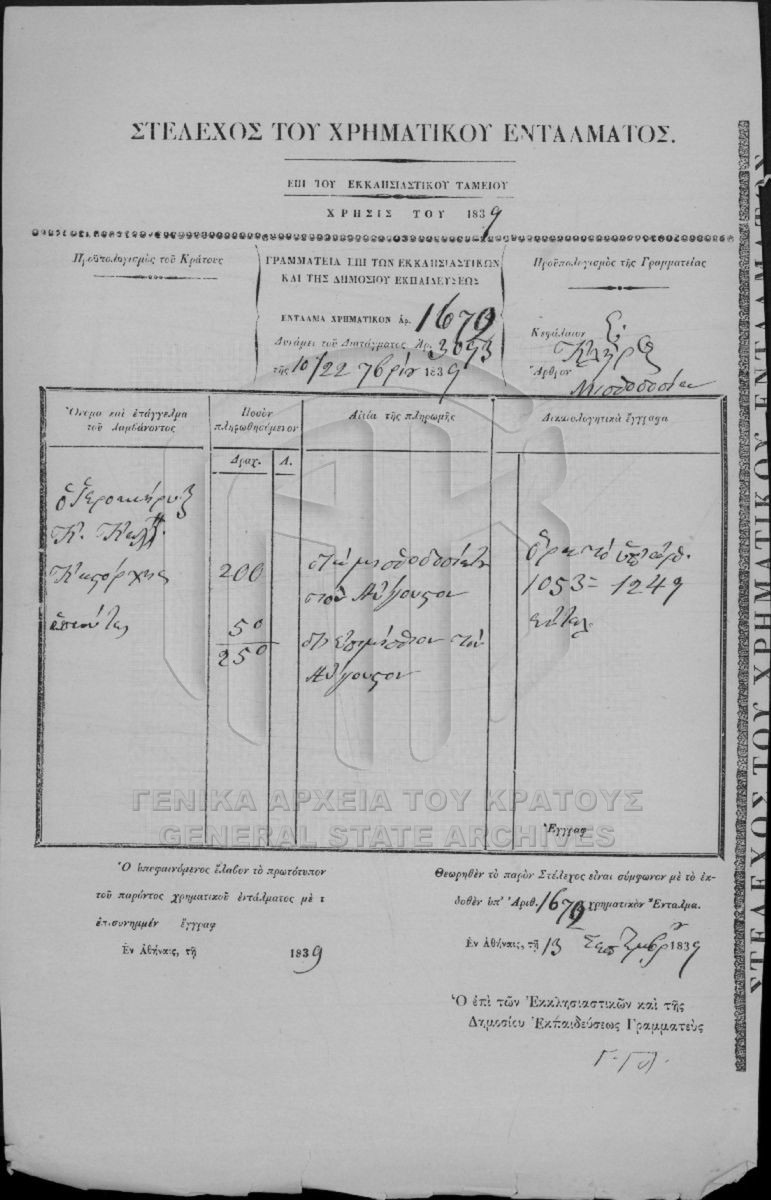 ΣΤΕΛΕΧΟΣ ΤΟΥ ΧΡΗΜΑΤΙΚΟΥ ΕΝΤΑΛΜΑΤΟΣ.
ΕΠΙ ΤΟΥ ΕΚΚΛΗΣΙΑΣΤΙΚΟΥ ΤΑΜΕΙΟΥ
ΧΡΗΣΙΣ ΤΟΥ 1839
Προϋπολογισμὸς τοῦ Κράτους
ΓΡΑΜΜΑΤΕΙΑ ΕΠΙ ΤΩΝ ΕΚΚΛΗΣΙΑΣΤΙΚΩΝ
ΚΑΙ ΤΗΣ ΔΗΜΟΣΙΟΥ ΕΚΠΑΙΔΕΥΣΕΩΣ
ΕΝΤΑΛΜΑ ΧΡΗΜΑΤΙΚΟΝ ἀρ. 1679
Δυνάμει τοῦ Διατάγματος Ἀρ. 3093
τῆς 10/22 7βρίου 1839
Προϋπολογισμὸς τῆς Γραμματείας
Κεφάλαιον
Ἄρθρον
Μισθοδοσίαι
Ὄνομα καὶ ἐπάγγελμα
τοῦ λαμβάνοντος
Ποσὸν
πληρωθησόμενον
Δραχ. Λ.
Αἰτία τῆς πληρωμῆς
Δικαιολογητικὰ ἔγγραφα
ὁ Ἱεροκήρυξ
Κ. Καλ.
200
50
250
μισθοδοσίαν
τοῦ Αὐγούστου
Αὐγούστου
1053 = 1249
Ἐνταλ
Ἔγγραφ
ΓΕΝΙΚΑ ΑΡΧΕΙΑ ΤΟΥ ΚΡΑΤΟΥΣ
GENERAL STATE ARCHIVES
Ὁ ὑπεφαινόμενος ἔλαβον τὸ πρωτότυπον
τοῦ παρόντος χρηματικοῦ ἐντάλματος μὲ τ
ἐπισυνημμέν ἔγγραφ
Ἐν Ἀθήναις, τῇ 1839
Θεωρηθὲν τὸ παρὸν Στέλεχος εἶναι σύμφωνον μὲ τὸ ἐκ-
δοθὲν ὑπ' Ἀριθ. 1679 χρηματικὸν Ἔνταλμα.
Ἐν Ἀθήναις, τῇ 13 Σεπτεμβρ 1839
Ὁ ἐπὶ τῶν Ἐκκλησιαστικῶν καὶ τῆς
Δημοσίου Ἐκπαιδεύσεως Γραμματεὺς
ΣΤΕΛΕΧΟΣ ΤΟΥ ΧΡΗΜΑΤΙΚΟΥ ΕΝΤΑΛΜΑΤΟΣ